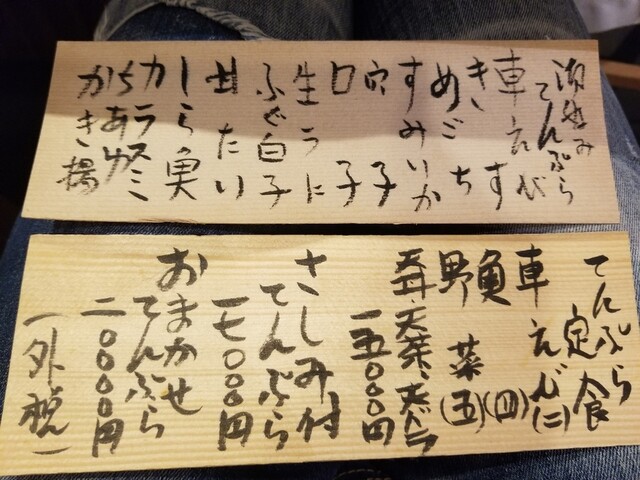 御好み
てんぷら
車えび
きす
めごち
すみいか
穴子
口子
生うに
ふぐ白子
甘たい
しら魚
カラスミ
ちあゆ
かき揚
てんぷら
定食
車えび(二)
魚(四)
野菜(五)
天丼、天茶、天バラ
一五〇〇〇円
さしみ付
てんぷら
一七〇〇〇円
おまかせ
てんぷら
二〇〇〇〇円
(外税)